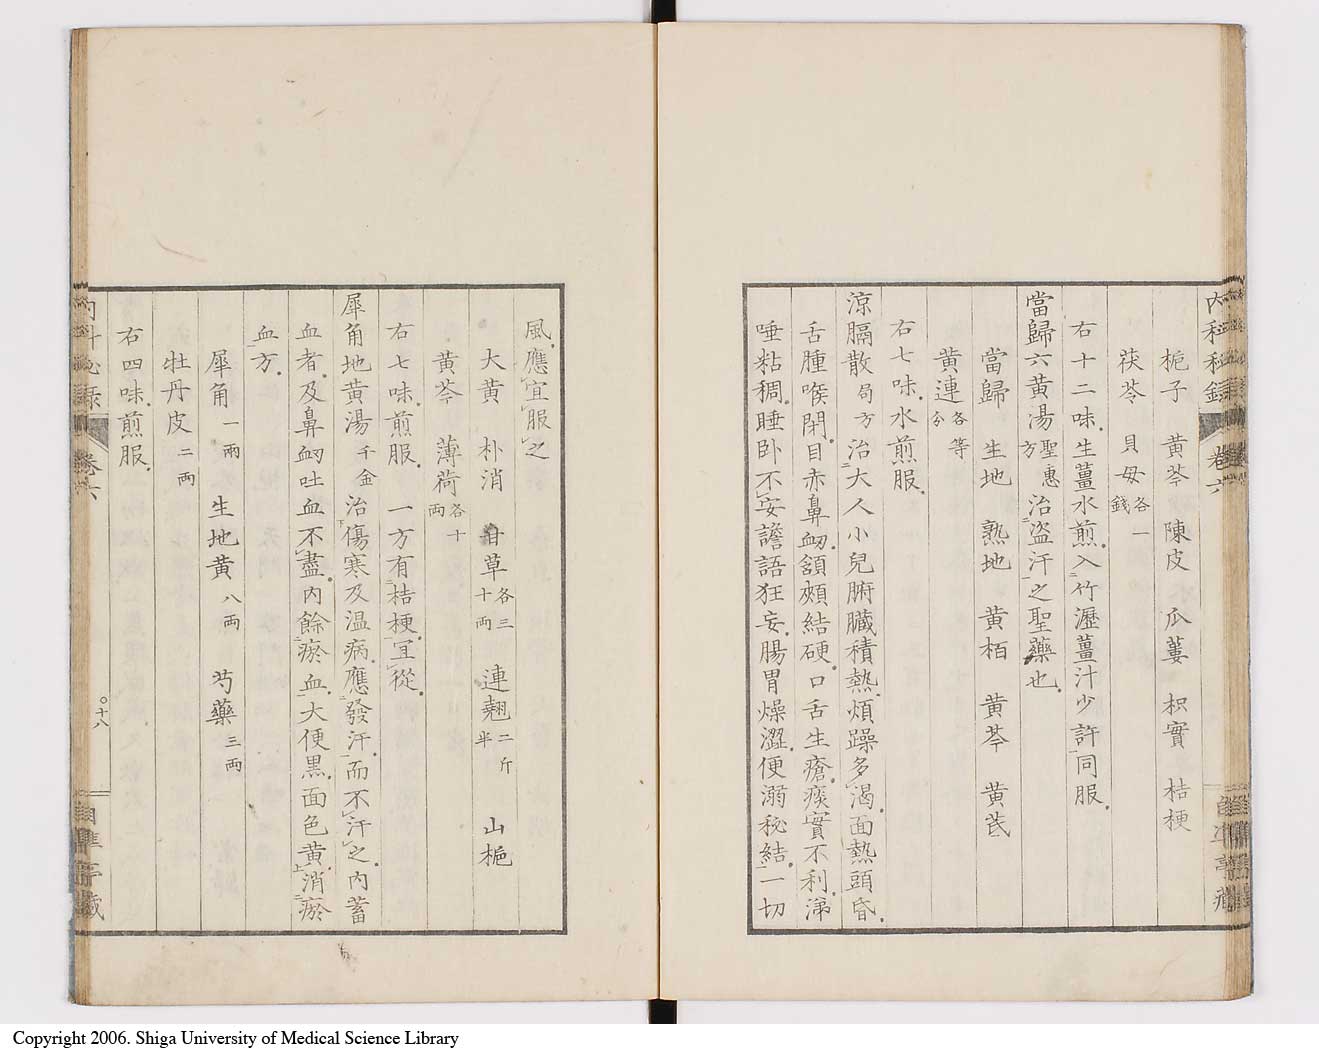 内科秘録 卷六
梔子 黄芩 陳皮 瓜蔞 枳實 桔梗
茯苓 貝母各一錢
右十二味生薑水煎入竹瀝薑汁少許同服
當歸六黄湯聖惠方治盗汗之聖藥也
當歸 生地 熟地 黄栢 黄芩 黄芪
黄連各等分
右七味水煎服
涼膈散局方治大人小兒腑臓積熱煩躁多渇面熱頭昏
舌腫喉閉目赤鼻衂頷頰結硬口舌生瘡痰實不利涕
唾粘稠睡卧不安譫語狂妄腸胃燥澀便溺秘結一切
風應宜服之
大黄 朴消 甘草各三十両 連翹二斤半 山梔
黄芩 薄荷各十両
右七味煎服一方有桔梗宜從
犀角地黄湯千金治傷寒及温病應發汗而不汗之内蓄
血者及鼻衂吐血不盡内餘瘀血大便黒面色黄消瘀
血方
犀角一両 生地黄八両 芍藥三両
牡丹皮二両
右四味煎服
内科秘録 卷六 十八
Copyright 2006. Shiga University of Medical Science Library